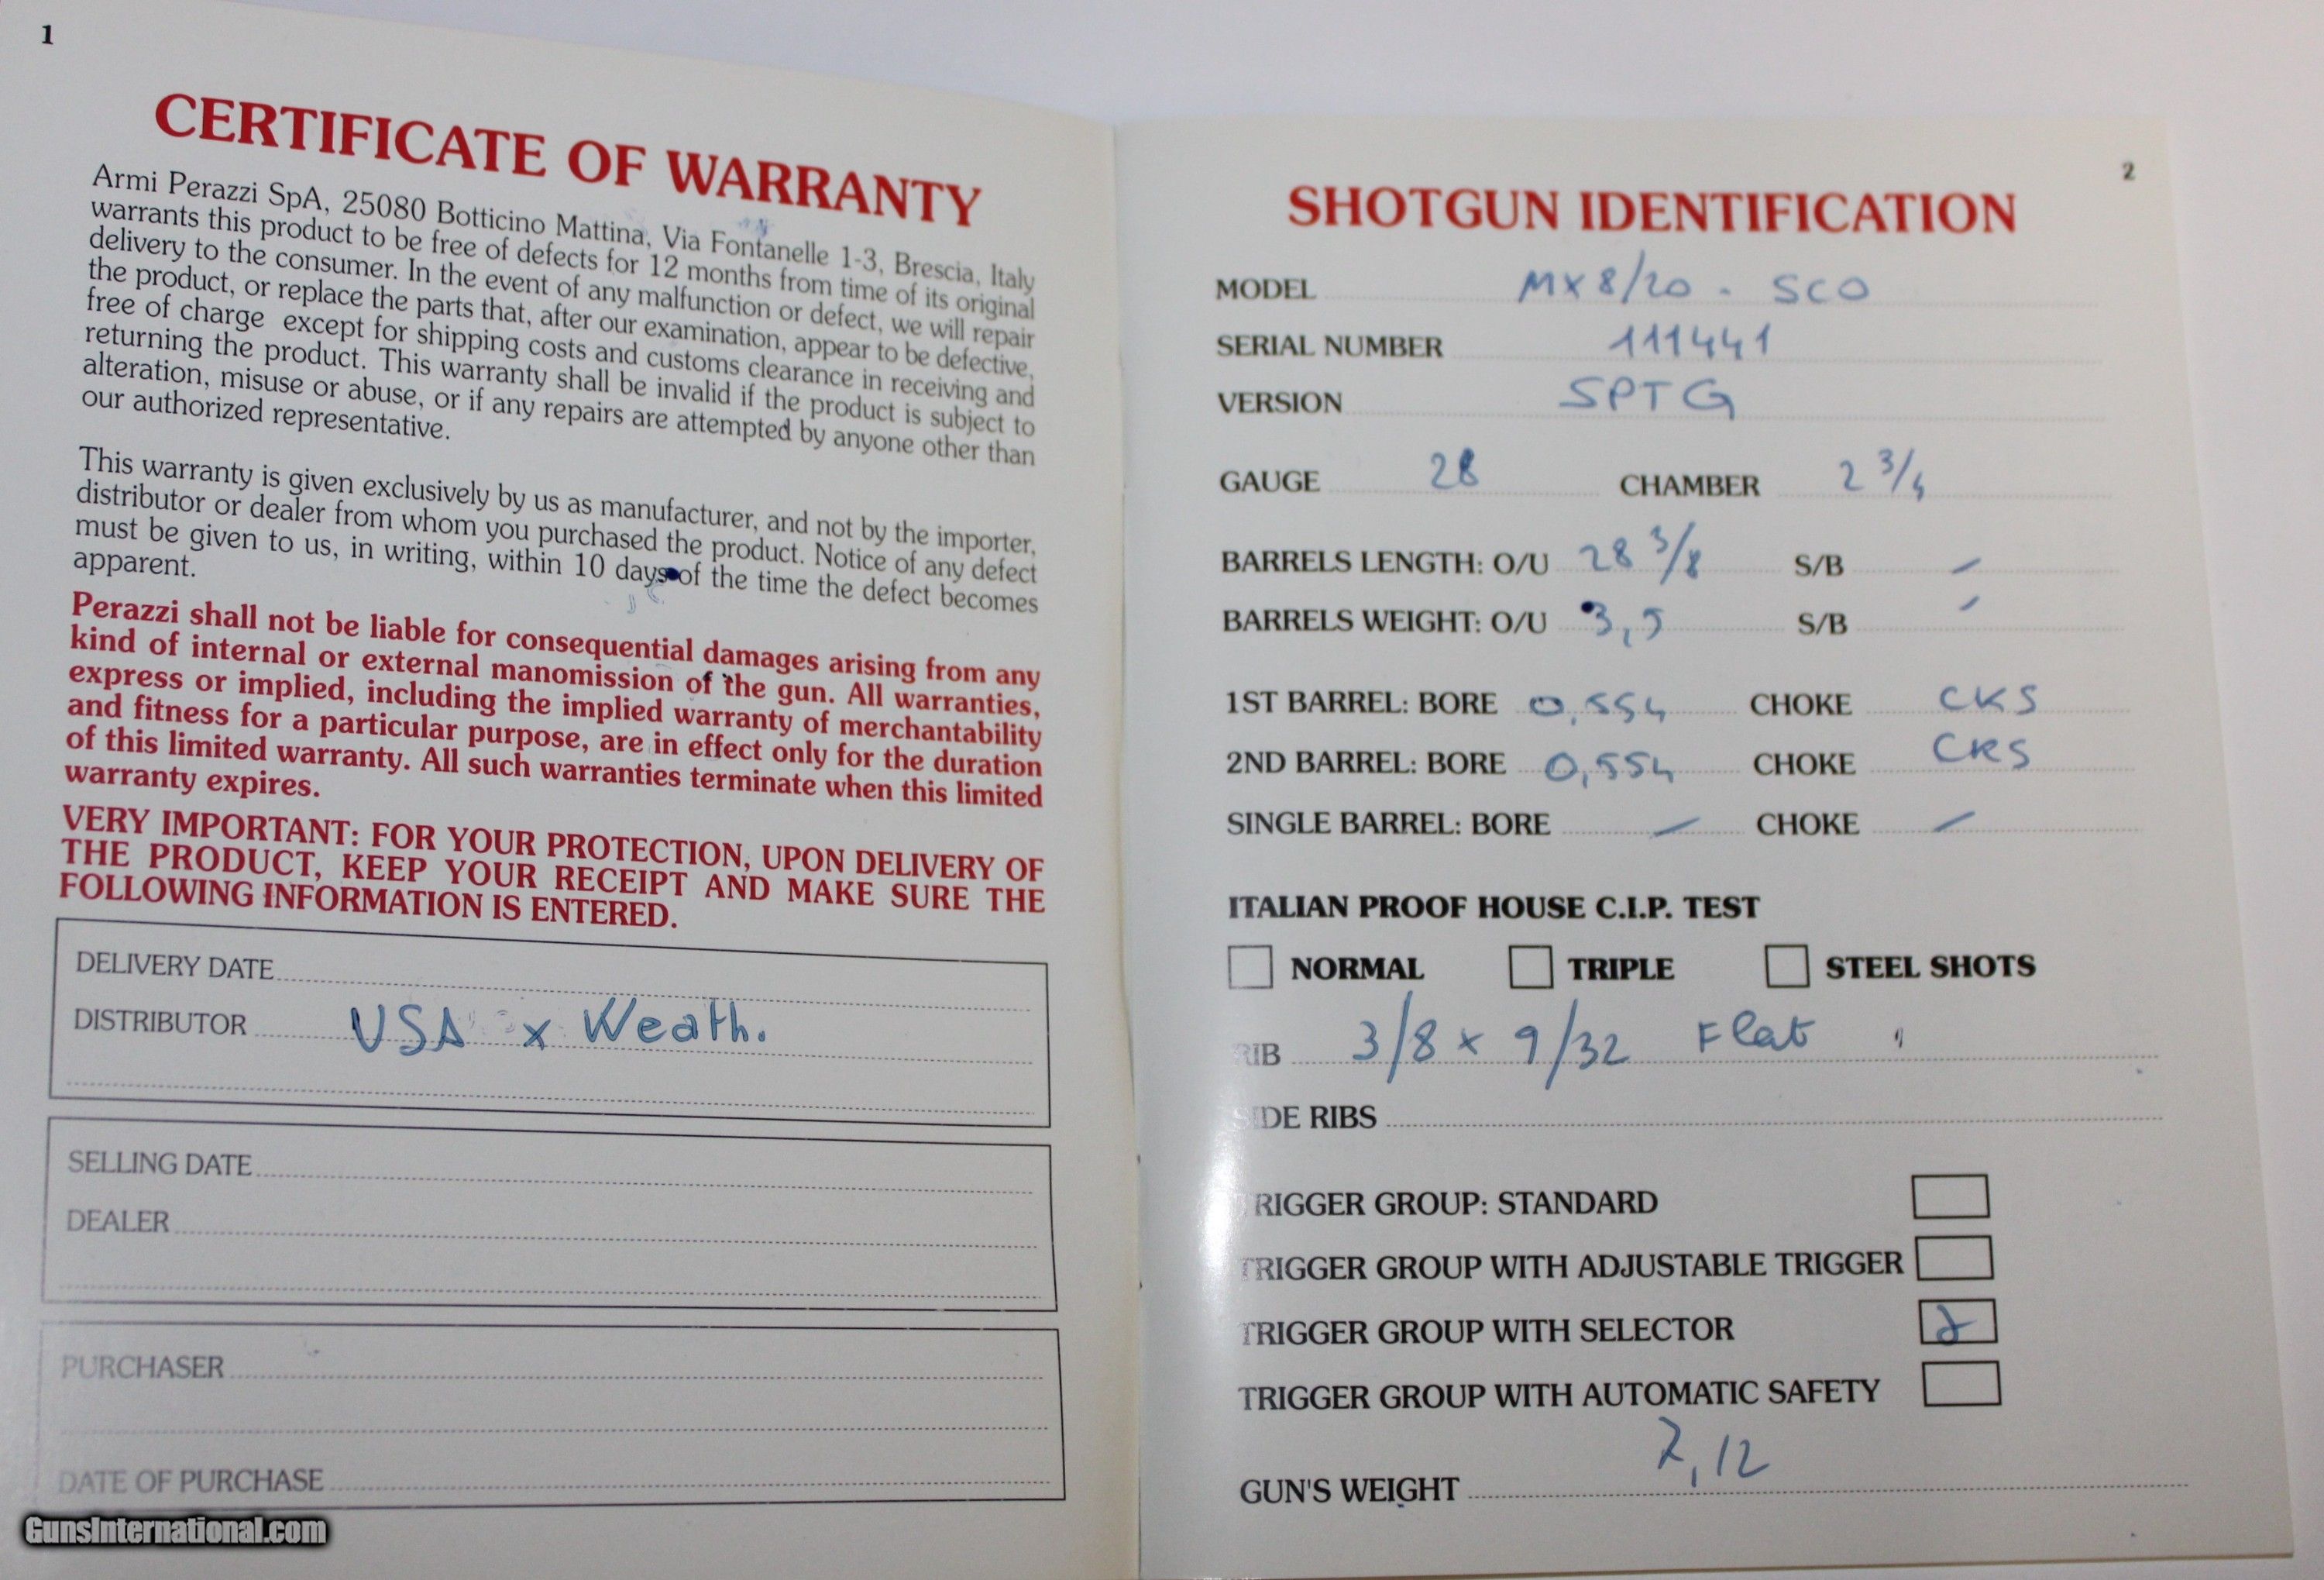 1
CERTIFICATE OF WARRANTY
Armi Perazzi SpA, 25080 Botticino Mattina, Via Fontanelle 1-3, Brescia, Italy
warrants this product to be free of defects for 12 months from time of its original
delivery to the consumer. In the event of any malfunction or defect, we will repair
the product, or replace the parts that, after our examination, appear to be defective,
free of charge except for shipping costs and customs clearance in receiving and
returning the product. This warranty shall be invalid if the product is subject to
alteration, misuse or abuse, or if any repairs are attempted by anyone other than
our authorized representative.
This warranty is given exclusively by us as manufacturer, and not by the importer,
distributor or dealer from whom you purchased the product. Notice of any defect
must be given to us, in writing, within 10 days of the time the defect becomes
apparent.
Perazzi shall not be liable for consequential damages arising from any
kind of internal or external manomission of the gun. All warranties,
express or implied, including the implied warranty of merchantability
and fitness for a particular purpose, are in effect only for the duration
of this limited warranty. All such warranties terminate when this limited
warranty expires.
VERY IMPORTANT: FOR YOUR PROTECTION, UPON DELIVERY OF
THE PRODUCT, KEEP YOUR RECEIPT AND MAKE SURE THE
FOLLOWING INFORMATION IS ENTERED.
DELIVERY DATE
DISTRIBUTOR USA x Weath.
SELLING DATE
DEALER
PURCHASER
DATE OF PURCHASE
GunsInternational.com
2
SHOTGUN IDENTIFICATION
MODEL MX8/20 - SCO
SERIAL NUMBER 111441
VERSION SPTG
GAUGE 28 CHAMBER 2 3/4
BARRELS LENGTH: O/U 28 3/8 S/B –
BARRELS WEIGHT: O/U 3,5 S/B –
1ST BARREL: BORE 0,554 CHOKE CKS
2ND BARREL: BORE 0,554 CHOKE CKS
SINGLE BARREL: BORE – CHOKE –
ITALIAN PROOF HOUSE C.I.P. TEST
NORMAL TRIPLE STEEL SHOTS
RIB 3/8 x 9/32 Flat
SIDE RIBS
TRIGGER GROUP: STANDARD
TRIGGER GROUP WITH ADJUSTABLE TRIGGER
TRIGGER GROUP WITH SELECTOR
TRIGGER GROUP WITH AUTOMATIC SAFETY
GUN'S WEIGHT 7,12